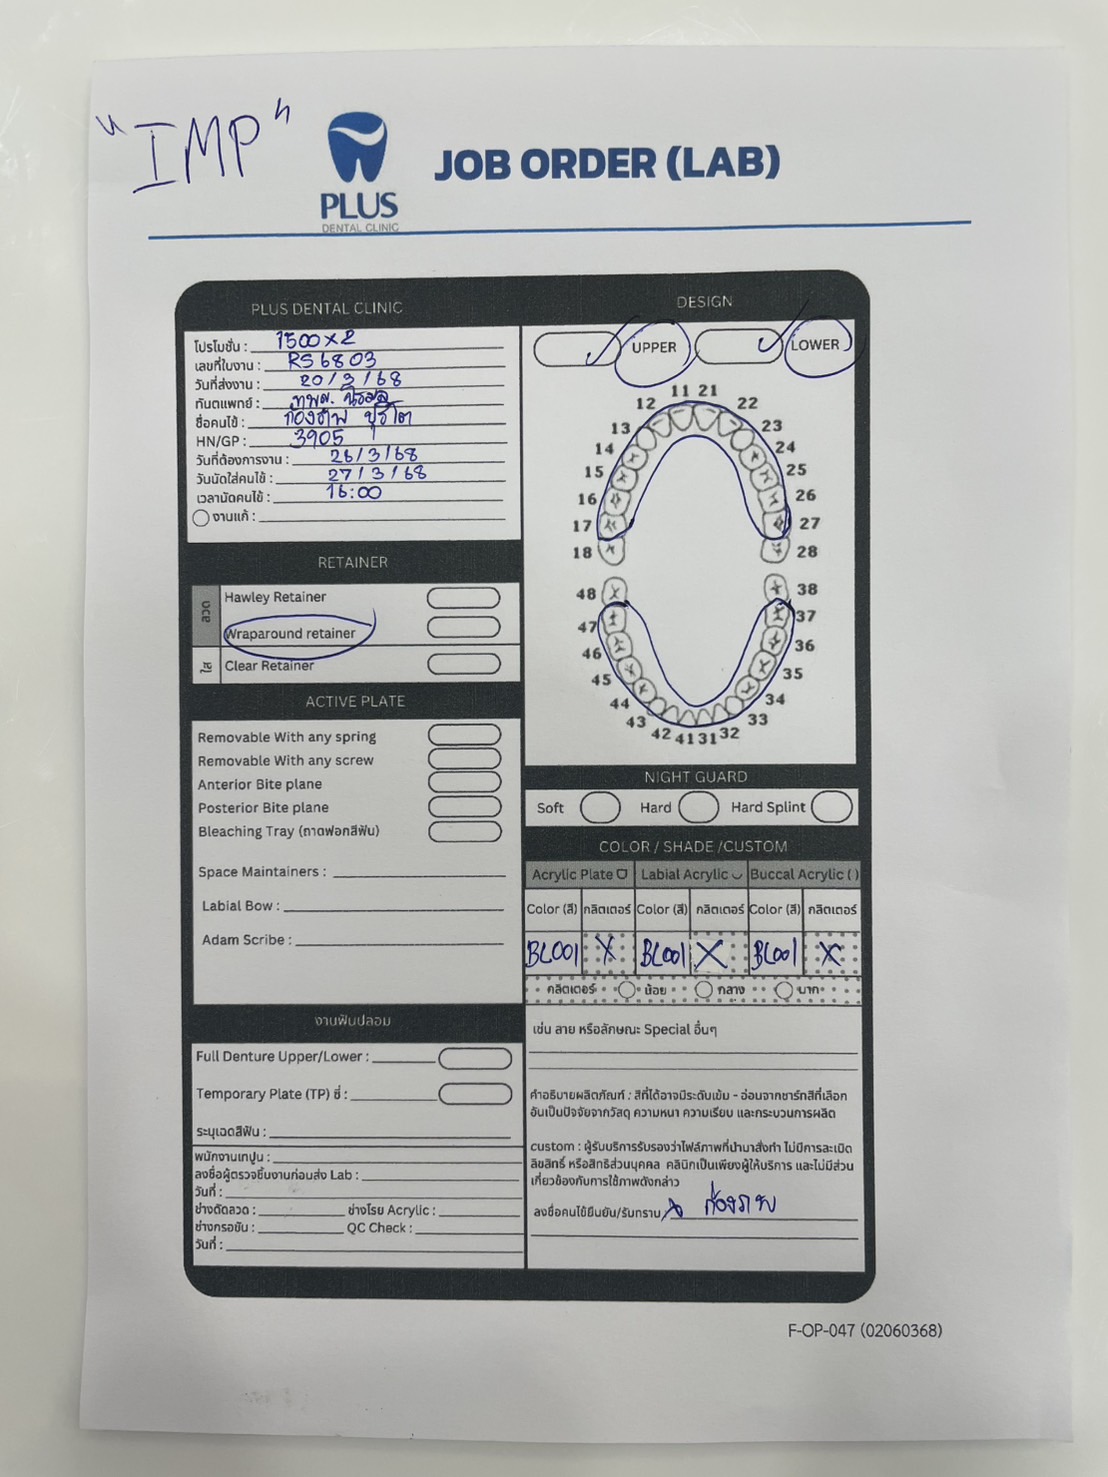 "IMP"
PLUS
DENTAL CLINIC
JOB ORDER (LAB)
PLUS DENTAL CLINIC
โปรโมชั่น : 1500x2
เลขที่ใบงาน : RS6803
วันที่ส่งงาน : 20/3/68
ทันตแพทย์ : ทพญ.
ชื่อคนไข้ :
HN/GP : 3905
วันที่ต้องการงาน : 26/3/68
วันนัดใส่คนไข้ : 27/3/68
เวลานัดคนไข้ : 16:00
งานแก้ :
RETAINER
ลวด
Hawley Retainer
Wraparound retainer
ใส
Clear Retainer
ACTIVE PLATE
Removable With any spring
Removable With any screw
Anterior Bite plane
Posterior Bite plane
Bleaching Tray (ถาดฟอกสีฟัน)
Space Maintainers :
Labial Bow :
Adam Scribe :
งานฟันปลอม
Full Denture Upper/Lower :
Temporary Plate (TP) ซี่ :
ระบุเฉดสีฟัน :
พนักงานเทปูน :
ลงชื่อผู้ตรวจชิ้นงานก่อนส่ง Lab :
วันที่ :
ช่างดัดลวด : ช่างโรย Acrylic :
ช่างกรอขัน : QC Check :
วันที่ :
DESIGN
UPPER LOWER
11 21
12 22
13 23
14 24
15 25
16 26
17 27
18 28
48 38
47 37
46 36
45 35
44 34
43 33
42 41 31 32
NIGHT GUARD
Soft Hard Hard Splint
COLOR / SHADE /CUSTOM
Acrylic Plate Labial Acrylic Buccal Acrylic ( )
Color (สี) กลิตเตอร์ Color (สี) กลิตเตอร์ Color (สี) กลิตเตอร์
BL001 X BL001 X BL001 X
กลิตเตอร์ น้อย กลาง มาก
เช่น ลาย หรือลักษณะ Special อื่นๆ
คำอธิบายผลิตภัณฑ์ : สีที่ได้อาจมีระดับเข้ม - อ่อนจากชาร์ทสีที่เลือก
อันเป็นปัจจัยจากวัสดุ ความหนา ความเรียบ และกระบวนการผลิต
custom : ผู้รับบริการรับรองว่าไฟล์ภาพที่นำมาสั่งทำ ไม่มีการละเมิด
ลิขสิทธิ์ หรือสิทธิส่วนบุคคล คลินิกเป็นเพียงผู้ให้บริการ และไม่มีส่วน
เกี่ยวข้องกับการใช้ภาพดังกล่าว
ลงชื่อคนไข้ยืนยัน/รับทราบ
F-OP-047 (02060368)